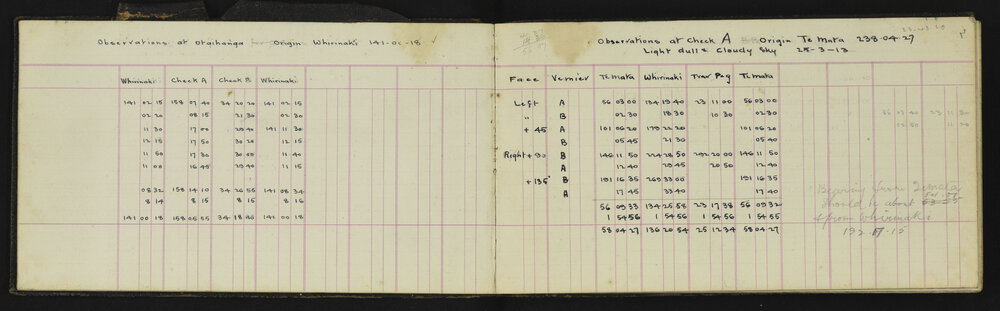 Observations at Otaihanga Origin Whirinaki 141-00-18 ✓
Whirinaki Check A Check B Whirinaki
141 02 15 158 07 40 34 20 20 141 02 15
02 20 08 15 21 30 02 30
11 30 17 00 29 40 141 11 30
12 15 17 50 30 20 12 15
11 50 17 30 30 00 11 40
11 00 16 45 29 40 11 15
08 32 158 14 10 34 26 55 141 08 34
8 14 8 15 8 15 8 16
141 00 18 158 05 55 34 18 40 141 00 18
Observations at Check A Origin Te Mata 238-04-27
Light dull & Cloudy Sky 25-3-13
Face Vernier Te Mata Whirinaki Trav Peg Te Mata
Left A 56 03 00 134 19 40 23 11 00 56 03 00
" B 02 30 18 30 10 30 02 30
+ 45 A 101 06 20 179 22 20 101 06 20
B 05 45 21 30 05 40
Right + 90 B 146 11 50 224 28 50 292 20 00 146 11 50
A 12 40 29 45 20 50 12 40
+ 135° B 191 16 35 269 33 00 191 16 35
A 17 45 33 40 17 40
56 09 33 134 25 58 23 17 38 56 09 32
1 54 56 1 54 56 1 54 56 1 54 55
58 04 27 136 20 54 25 12 34 58 04 27
Bearing from Temata
should be about
& from Whirinaki
192
15